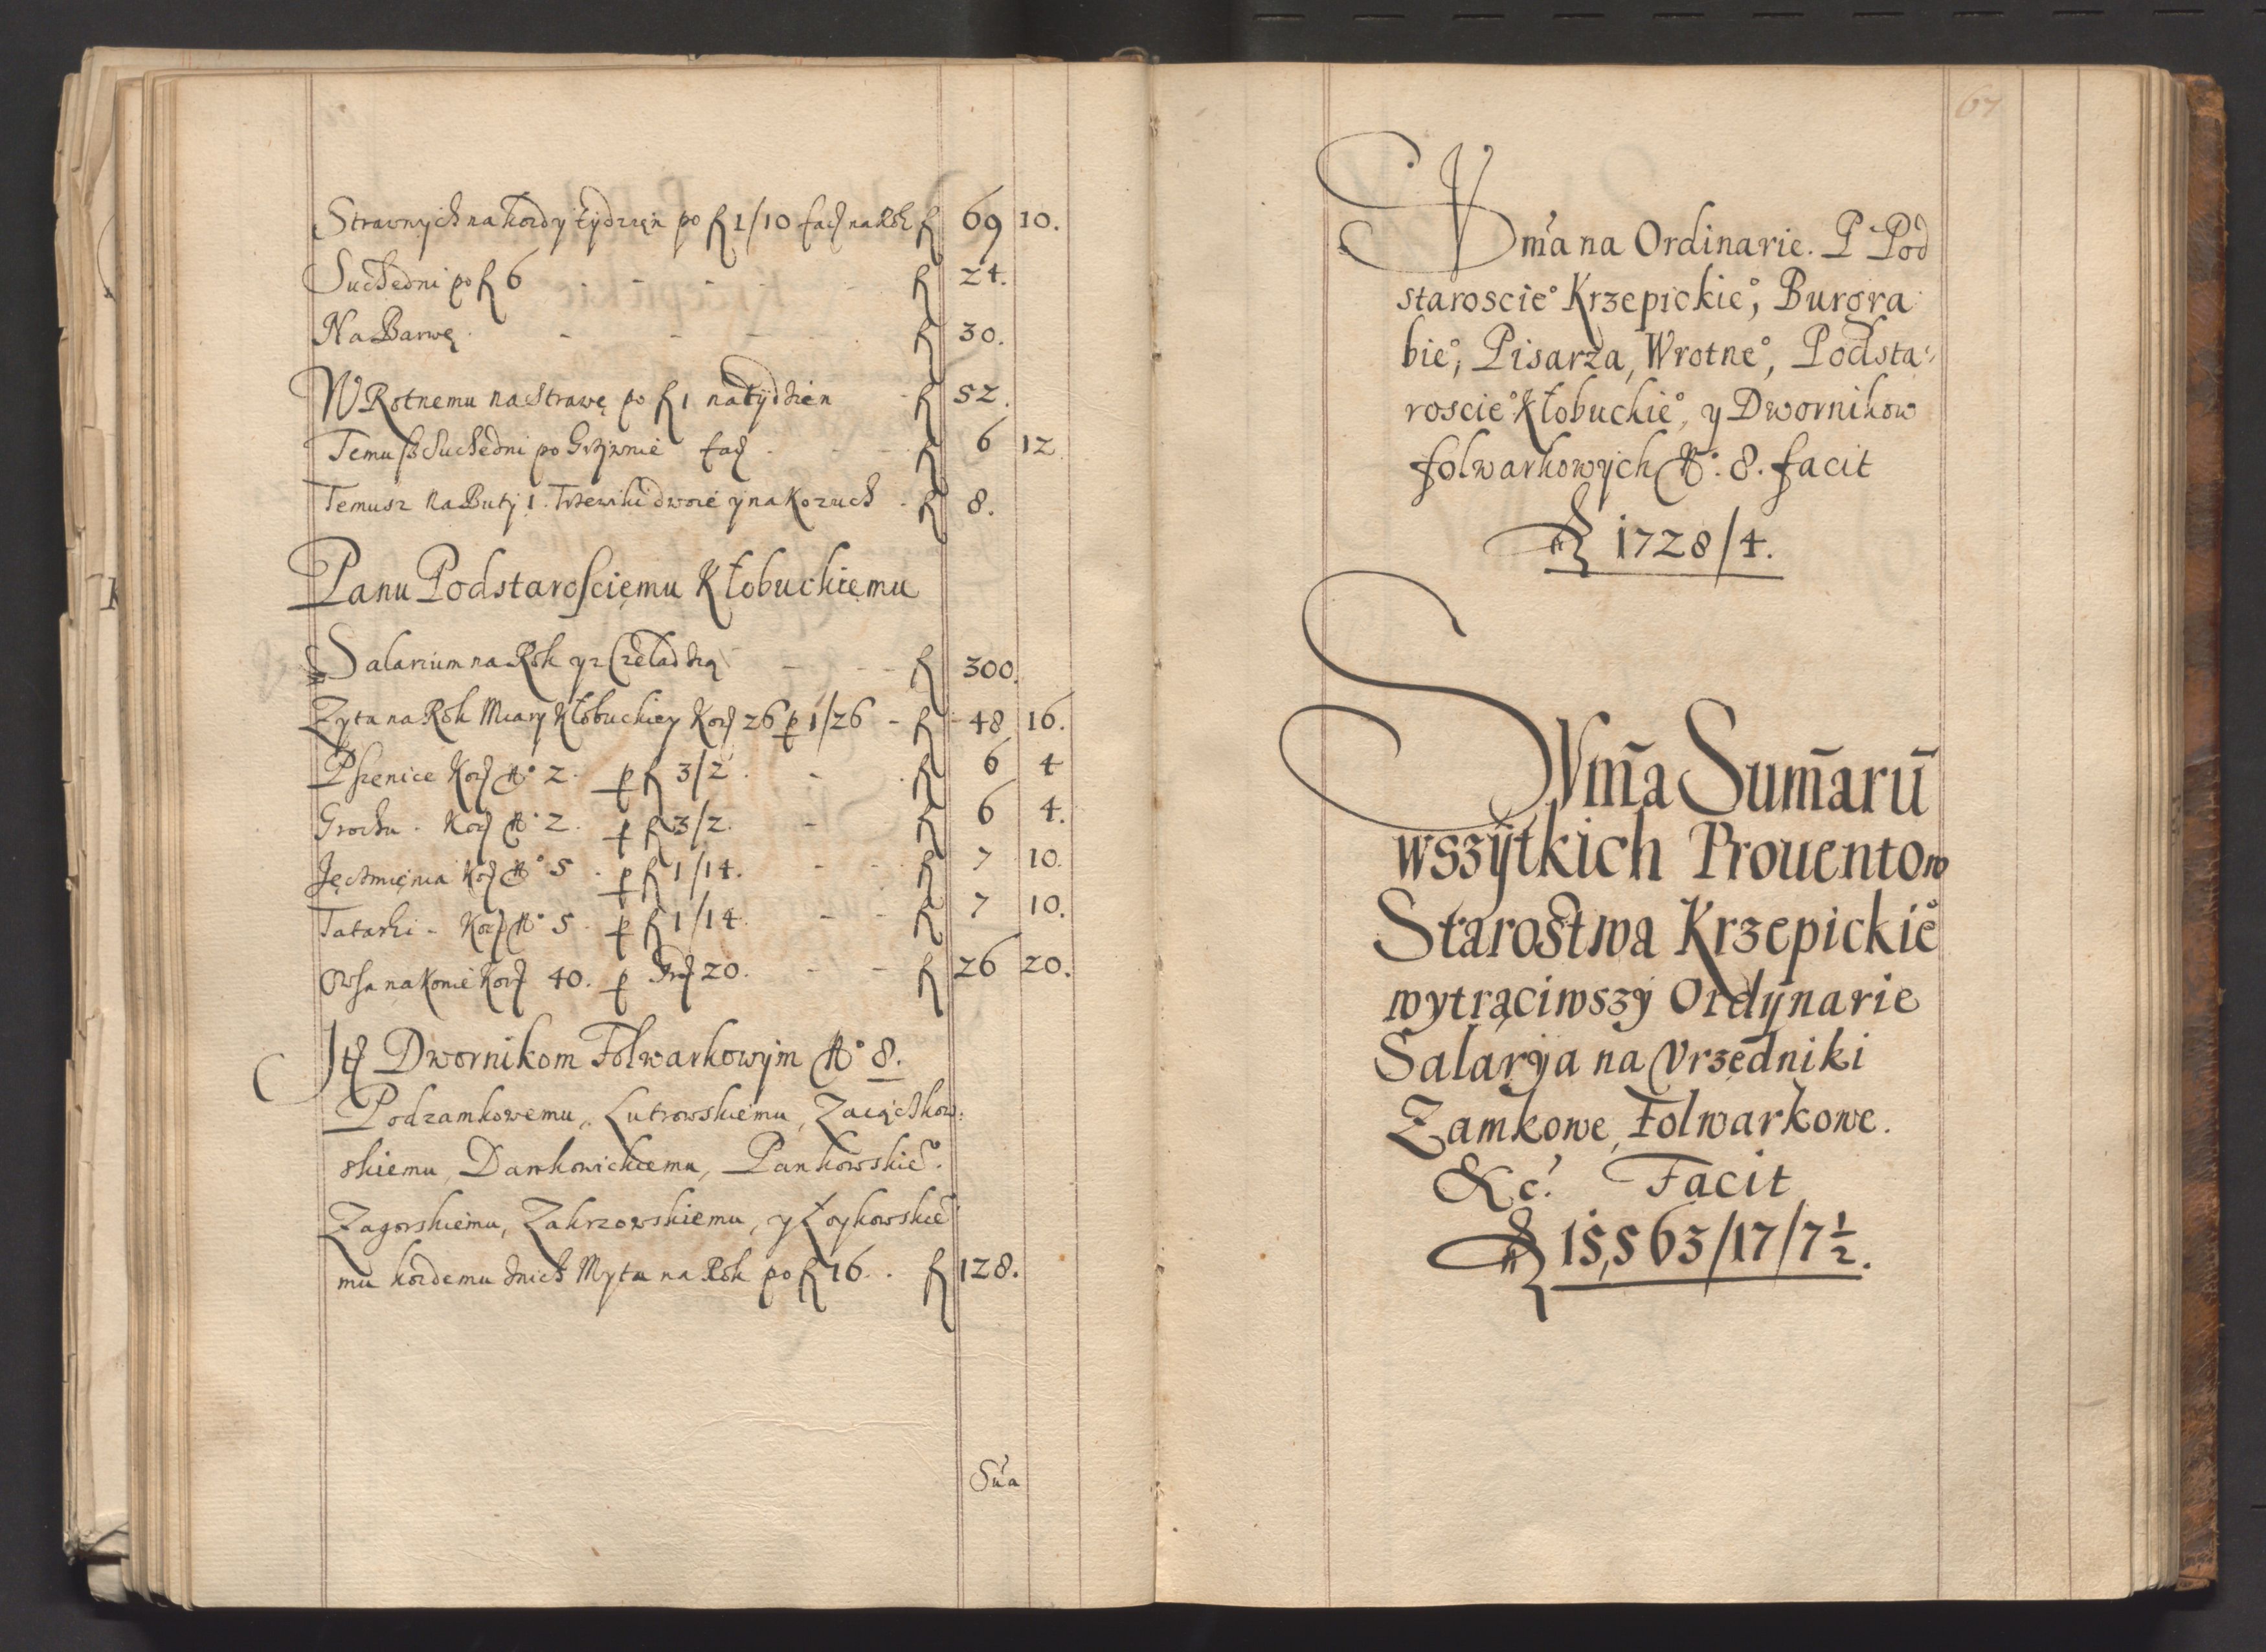 Strawnych na kozdy tydzięn po f 1/10 facit na Rok f 69 10.
Suchedni po f 6 - - - - - f 24.
Na Barwę - - - - f 30.
WRotnemu na Strawę po f 1 na tydzien - f 52.
Temusz Suchedni po Grzywnie fac - - - f 6 12
Temusz na Buty 1. Trzewiki dwoie y na Kozuch - f 8.
Panu Podstarosciemu Kłobuckiemu
Salarium na Rok y z Czeladzią - - - f 300.
Zyta na Rok Miary Kłobuckiey Kor 26 p 1/26 - f 48 16.
Pszenice Kor No 2. p f 3/2. - - f 6 4
Grochu. Kor No 2. p f 3/2. - f 6 4.
Jęczmięnia Kor No 5. p f 1/14. - - f 7 10.
Tatarki - Kor No 5. p f 1/14 - - f 7 10.
Owsa na Konie Kor 40. p gr 20. - - f 26 20.
It Dwornikom Folwarkowym No 8.
Podzamkowemu, Lutrowskiemu, Zaiączkow:
skiemu, Dankowickiemu, Pankowskieo.
Zagorskiemu, Zakrzowskiemu, y Łoykowskie
mu kozdemu znich Myta na Rok po f 16. . f 128.
Sua
67
SVma na Ordinarie. P Pod
staroscieo Krzepickieo, Burgra
bieo, Pisarza, Wrotneo, Podsta:
roscieo Kłobuckieo, y Dwornikow
folwarkowych No. 8. facit
f 1728/4.
SVma Sumaru
wszytkich Prouentow
Starostwa Krzepickieo
wytrąciwszy Ordynarie
Salarya na Vrzędniki
Zamkowe, Folwarkowe.
&c. Facit
f 15,563/17/7 1/2.